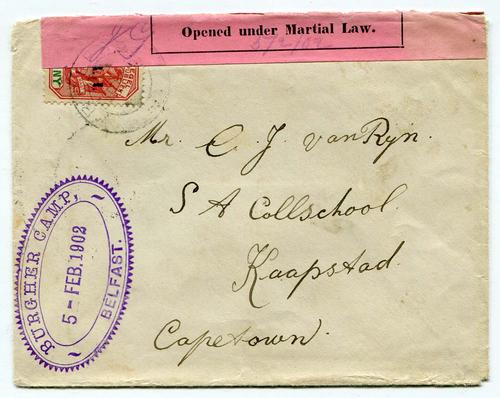 Opened under Martial Law.
Mr. C. J. van Ryn.
S A Collschool
Kaapstad.
Capetown.
BURGHER CAMP,
5 - FEB. 1902
BELFAST.